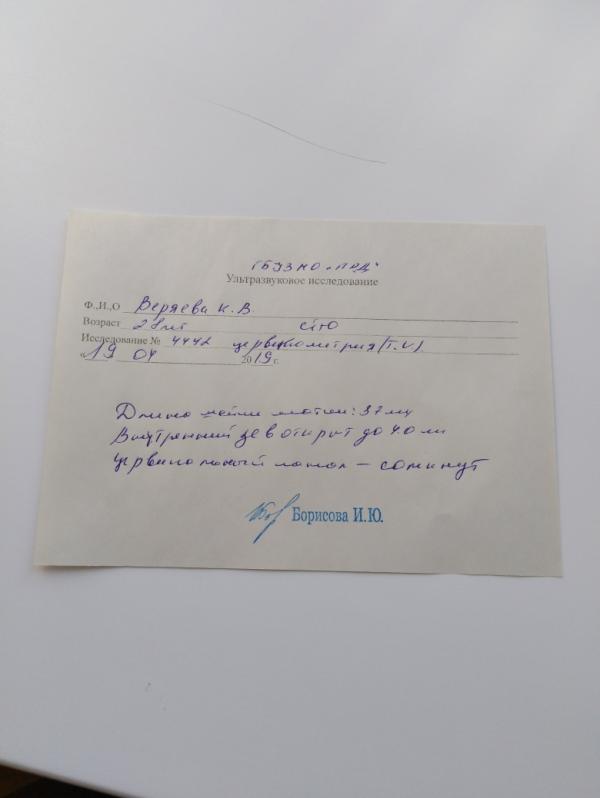 ГБУЗМО „ПРД"
Ультразвуковое исследование
Ф.,И.,О Веряева К. В.
Возраст 28 лет
Исследование № 4442 цервикометрия (T.V.)
«19 04 2019 г.
Длина шейки матки: 37 мм
Внутренний зев открыт до
Цервикальный канал – сомкнут
Борисова И.Ю.